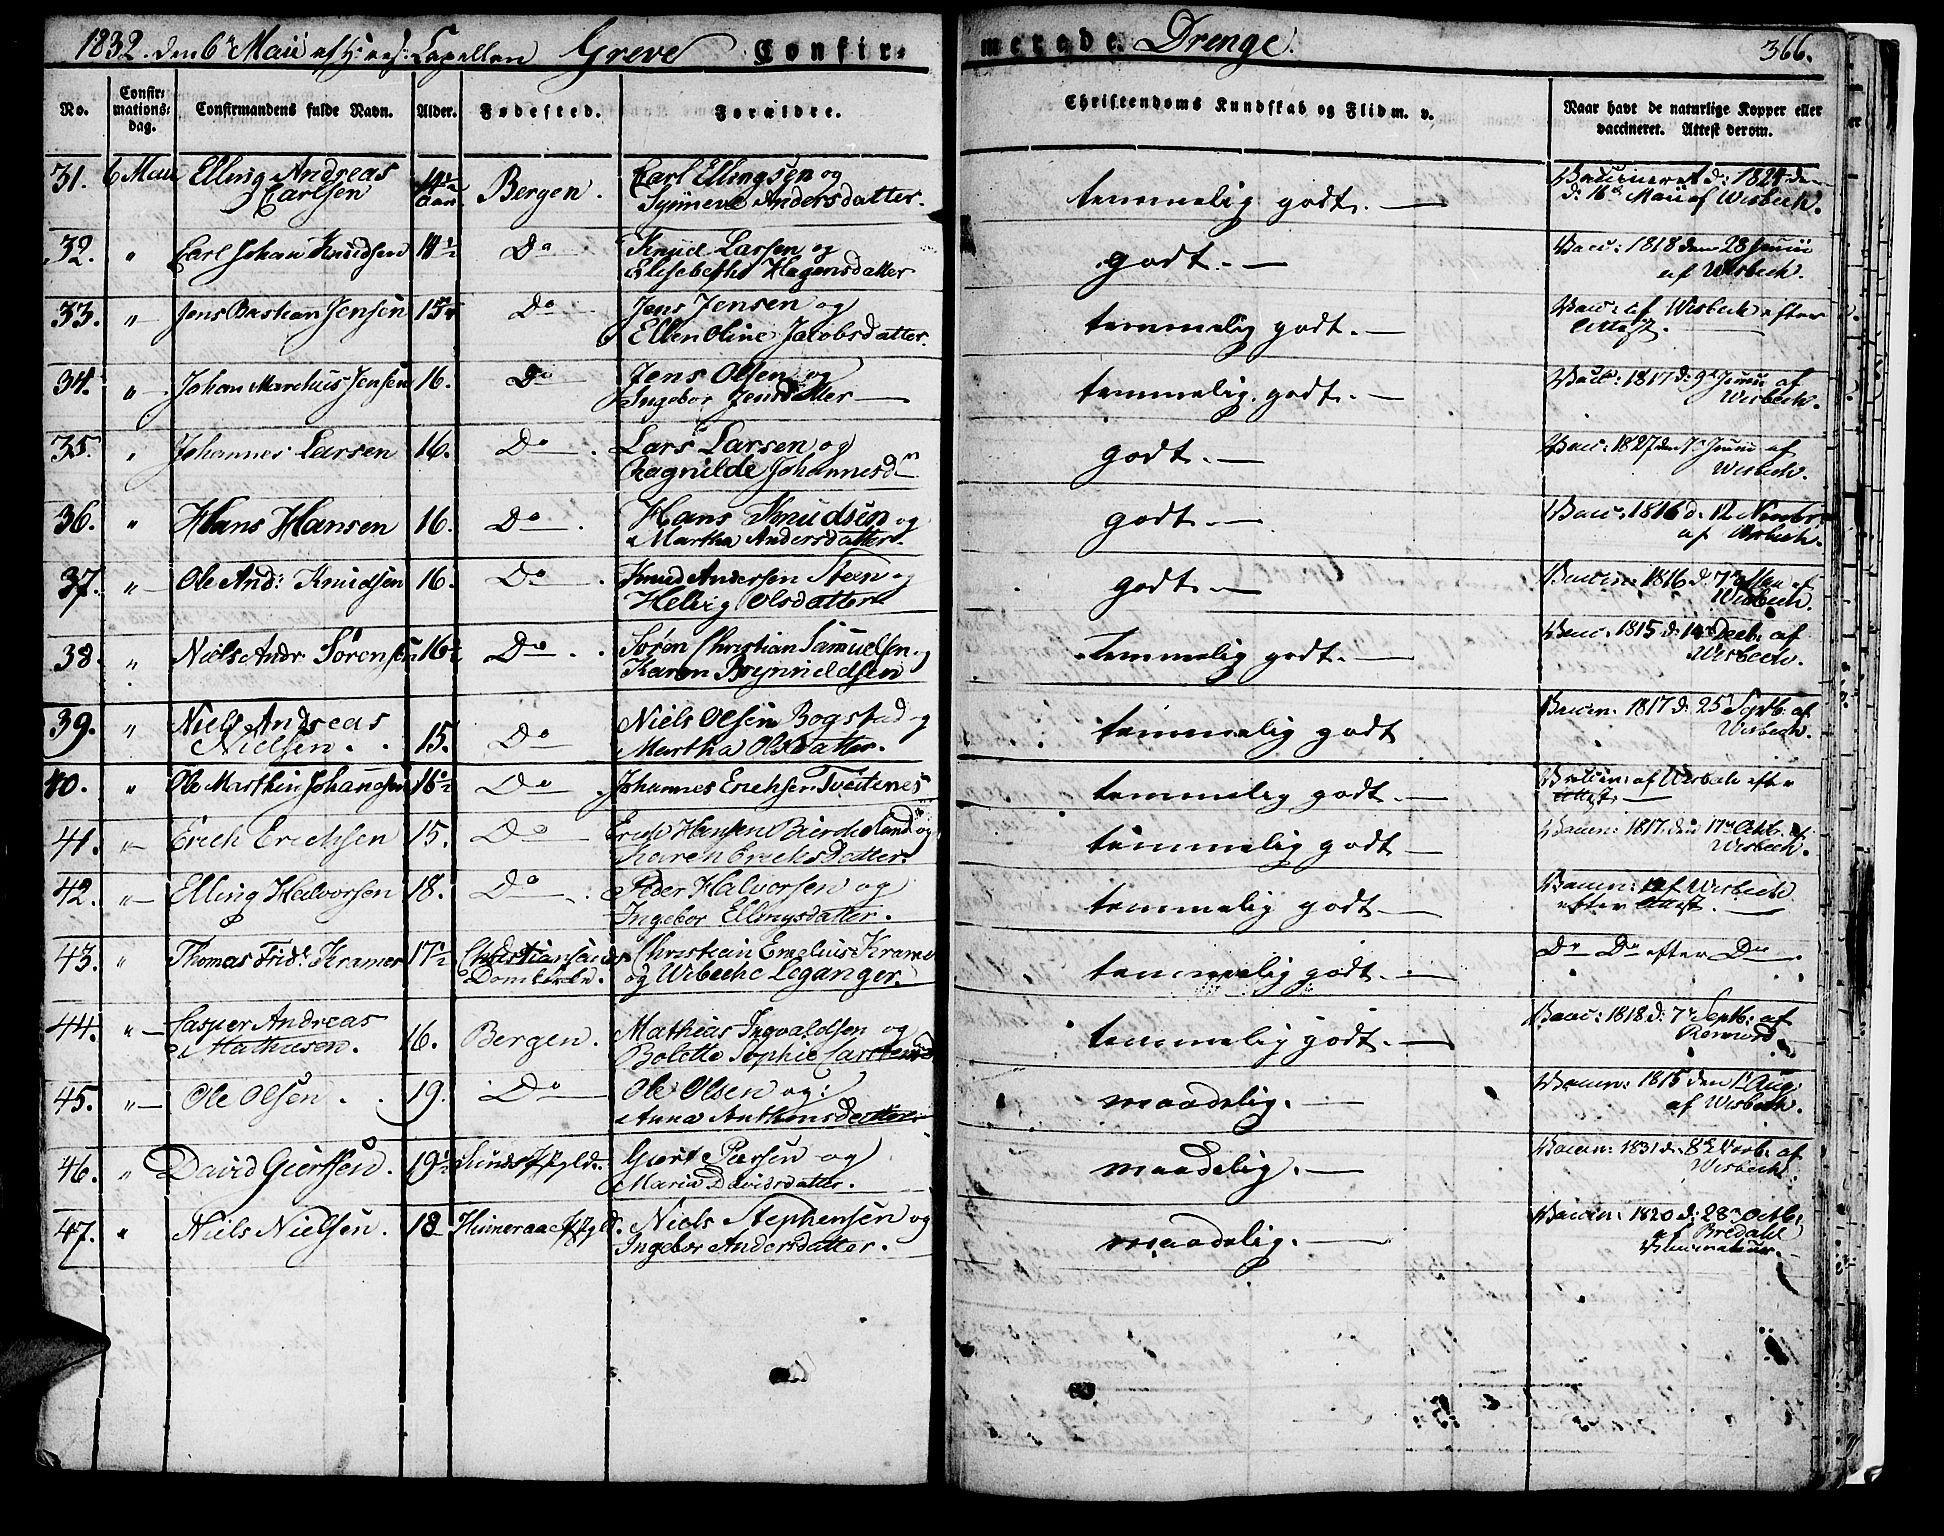 1832. den 6te Maii af Hr res: Capellan Greve Confirmerede Drenge. 366.
No. Confirmationsdag. Confirmandens fulde Navn. Alder. Fødested. Forældre. Christendoms Kundskab og Flid m. v. Naar havt de naturlige Kopper eller vaccineret. Attest derom.
31. 6 Maii Elling Andreas Carlsen Bergen. Carl Ellingsen og
Synneve Andersdatter. temmelig godt. Vaccineret d: 1824 den
d: 16de Maii af Wisbech.
32. " Carl Johan Knudsen Do Knud Larsen og
Elisebethe Hagensdatter godt. Vacc: 1818 den 28 Junii
af Wisbech.
33. " Jens Bastian Jensen Do Jens Jensen og
Ellen Oline Jacobsdatter. temmelig godt. Vacc: af Wisbech efter
Attest.
34. " Johan Marthus Jensen 16. Do Jens Olsen og
Ingebor Jensdatter temmelig godt. Vacc: 1817 d: 9de Junii af
Wisbech.
35. " Johannes Larsen 16. Do Lars Larsen og
Ragnilde Johannesd godt. Vacc: 1827 den 7de Junii af
Wisbech.
36. " Hans Hansen 16. Do Hans Knudsen og
Martha Andersdatter. godt. Vacc: 1816 d. 12 Novbr
af Wisbech.
37. " Ole And: Knudsen 16. Do Knud Andersen Steen og
Helvig Olsdatter godt. Vaccin: 1816 d. 7de Mai af
Wisbech.
38. " Niels Andr Sörensen 16½ Do Søren Christian Samuelsen og
Karen Brynnieldsen temmelig godt. Vacc: 1815 d: 14de Decb: af
Wisbech.
39. " Niels Andreas
Nielsen. 15. Do Niels Olsen Bogstad og
Martha Olsdatter. temmelig godt Vaccin. 1817 d: 25 Septb. af
Wisbech.
40. " Ole Marthin Johannesen 16½ Do Johannes Erichsen Tveitenes temmelig godt. Vaccin: af Wisbech efter
Attest.
41. " Erich Erichsen 15. Do Erich Hansen Bierdeland og
Karen Ericksdatter. temmelig godt Vaccin: 1817. den 17de Octb. af
Wisbech.
42. " Elling Halvorsen 18. Do Peder Halvorsen og
Ingebor Ellingsdatter. temmelig godt. Vaccin: af Wisbech
efter Attest.
43. " Thomas Fridr. Kramer 17½ Christiansands
Domkirke. Christian Emelius Kramer
og Wibeche Leganger. temmelig godt. Do Do efter Do
44. " Casper Andreas
Mathiesen. 16. Bergen. Mathias Ingvaldsen og
Bolette Sophie Carstensd temmelig godt. Vacc: 1818 d: 7de Septb: af
45. " Ole Olsen. 19. Do Ole Olsen og:
Anna Anthonsdatter maadelig. Vaccin: 1815 den 1 Aug:
af Wisbech.
46. " David Giertsen. 19½ Sunds Pgld. Giert Piersen og
Maria Davidsdatter. maadelig. Vaccin: 1831 d: 8de af
Wisbech.
47. " Niels Nielsen. 18 Niels Stephensen og
Ingebor Andersdatter. maadelig. Vaccin: 1820 d: 28de Octb:
af Bredahl